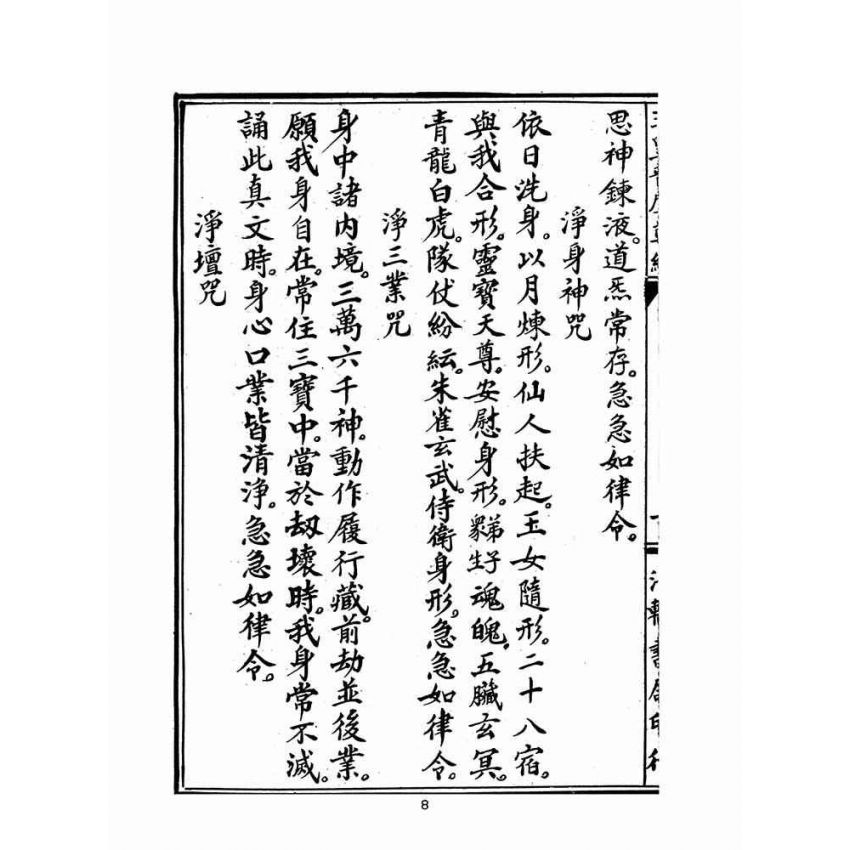 思神鍊液。道炁常存。急急如律令。
淨身神咒
依日洗身。以月煉形。仙人扶起。玉女隨形。二十八宿。
與我合形。靈寶天尊。安慰身形。弟子衆生魂魄。五臟玄冥。
青龍白虎。隊仗紛紜。朱雀玄武。侍衛身形。急急如律令。
淨三業咒
身中諸內境。三萬六千神。動作履行藏。前劫並後業。
願我身自在。常住三寶中。當於劫壞時。我身常不滅。
誦此真文時。身心口業皆清淨。急急如律令。
淨壇咒
8